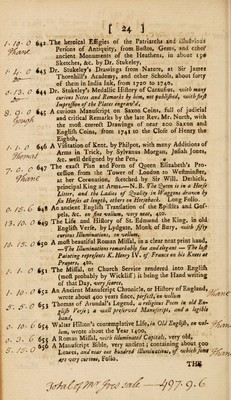 [ 24 ]
1.10.0 642 The heroical Effigies of the Patriarchs and illustrious
Phane Persons of Antiquity, from Bustos, Gems, and other
ancient Monuments of the Heathens, in about 150
Sketches, &c. by Dr. Stukeley.
643 Dr. Stukeley's Drawings from Nature, at Sir James
Thornhill's Academy, and other Schools, about forty
of them in India Ink, from 1720 to 1740.
0.13.0 644 Dr. Stukeley's Medallic History of Carausius, with many
curious Notes and Remarks by him, not published, with first
Impression of the Places engraved,
8.9.0 645 A curious Manuscript on Saxon Coins, full of judicial
Gough and critical Remarks by the late Rev. Mr. North, with
the most correct Drawings of near 200 Saxon and
English Coins, from 1741 to the Close of Henry the
Eighth,
1.1.0 646 A Visitation of Kent, by Philipot, with many Additions of
Thomas Arms in Trick, by Sylvanus Morgan, Josiah Jones,
&c. well designed by the Pen,
7.0.0 647 The exact Plan and Form of Queen Elizabeth's Pro-
Phane cession from the Tower of London to Westminster,
at her Coronation, sketched by Sir Will. Dethick,
principal King at Arms—N. B. The Queen is in a Horse
Litter, and the Ladies of Quality in Waggons drawn by
six Horses at length, others on Horseback. Long Folio.
0.15.6 648 An ancient English Translation of the Epistles and Gos-
pels, &c. on fine vellum, very neat, 400.
13.10.0 649 The Life and History of St. Edmund the King, in old
English Verse, by Lydgate, Monk of Bury, with fifty
curious Illuminations, on vellum,
10.15.0 650 A most beautiful Roman Missal, in a clear neat print hand,
—The Illuminations remarkably fine and elegant—The last
Painting represents K. Henry IV. of France on his Knees at
Prayers, 400.
1.1.0 651 The Missal, or Church Service rendered into English
(most probably by Wickliff) is being the Hand writing
of that Day, very scarce,
1.10.0 652 An Ancient Manuscript Chronicle, or History of England,
wrote about 400 years since, perfect, on vellum
5.5.0 653 Thomas of Arundel's Legend, a religious Poem in old En-
glish Verse; a well preserved Manuscript, and a legible
hand,
0.10.6 654 Walter Hilton's contemplative Life, in Old English, on vel-
lum, wrote about the Year 1400.
0.3.6 655 A Roman Missal, with illuminated Capitals, very old,
5.15.0 656 A Manuscript Bible, very ancient; containing about 500
Leaves, and near one hundred Illuminations, of which some
are very curious, Folio.
THE
Total of Mr Ives's sale — 497.9.6